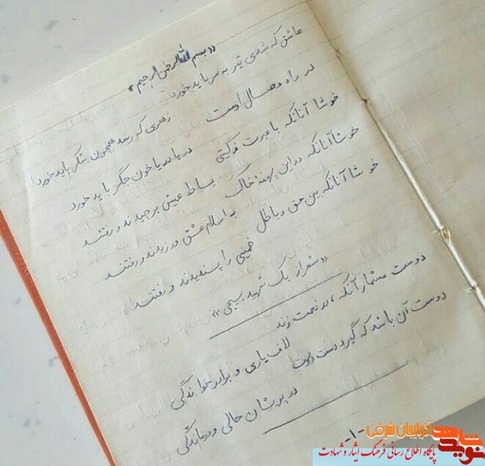 «بسم الله الرحمن الرحیم»
عاشق که شدی تیر به سر باید خورد
زهری که رسد همچون شکر باید خورد
در راه وصال اوست
دریا دریا خون جگر باید خورد
خوشا آنانکه با عزت ز گیتی
بساط عیش برچیدند و رفتند
خوشا آنانکه در این پهنه خاک
به اسلام عشق ورزیدند و رفتند
خوشا آنانکه بین حق و باطل
خمینی را پسندیدند و رفتند
«شعر از یک شهید بسیجی»
دوست مشمار آنکه در نعمت زند
لاف یاری و برادر خواندگی
دوست آن باشد که گیرد دست دوست
در پریشان حالی و درماندگی
-۱-
نوید شاهد
آذربایجان شرقی
پایگاه اطلاع رسانی فرهنگ ایثار و شهادت